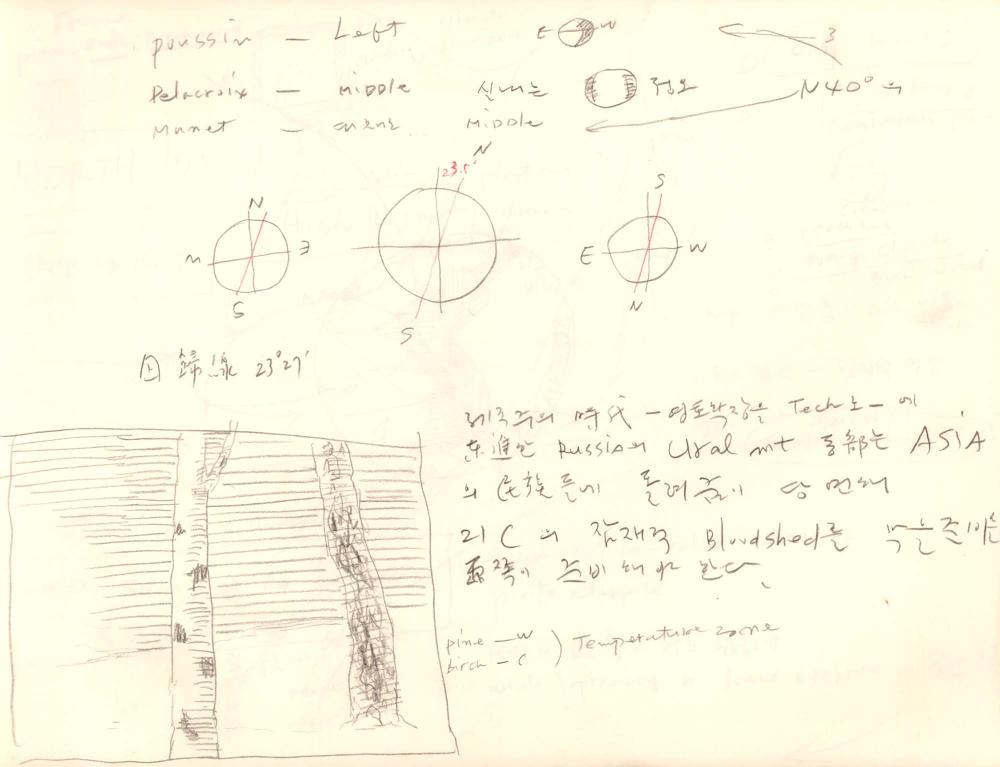 poussin — Left
E W
3
Delacroix — MiDDLe 실내는 정오
N40°의
Manet — MiDDLe
N
23.5°
S
N
E
S
S
E W
N
回歸線 23°27'
제국주의 時代 — 영토확장을 Tech노 — 에
東進한 Russia의 Ural mt 동部는 ASIA
의 民族들에 돌려줌이 당연해
21C의 잠재적 Bloodshed를 막을 준비를
준비해야 한다.
pine — W
birch — C ) Temperature zone